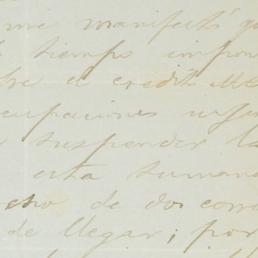 me manifestó q
tiempo impon
de credit
cupaciones
suspender la
esta semana
cho de dos corre
de llegar; por